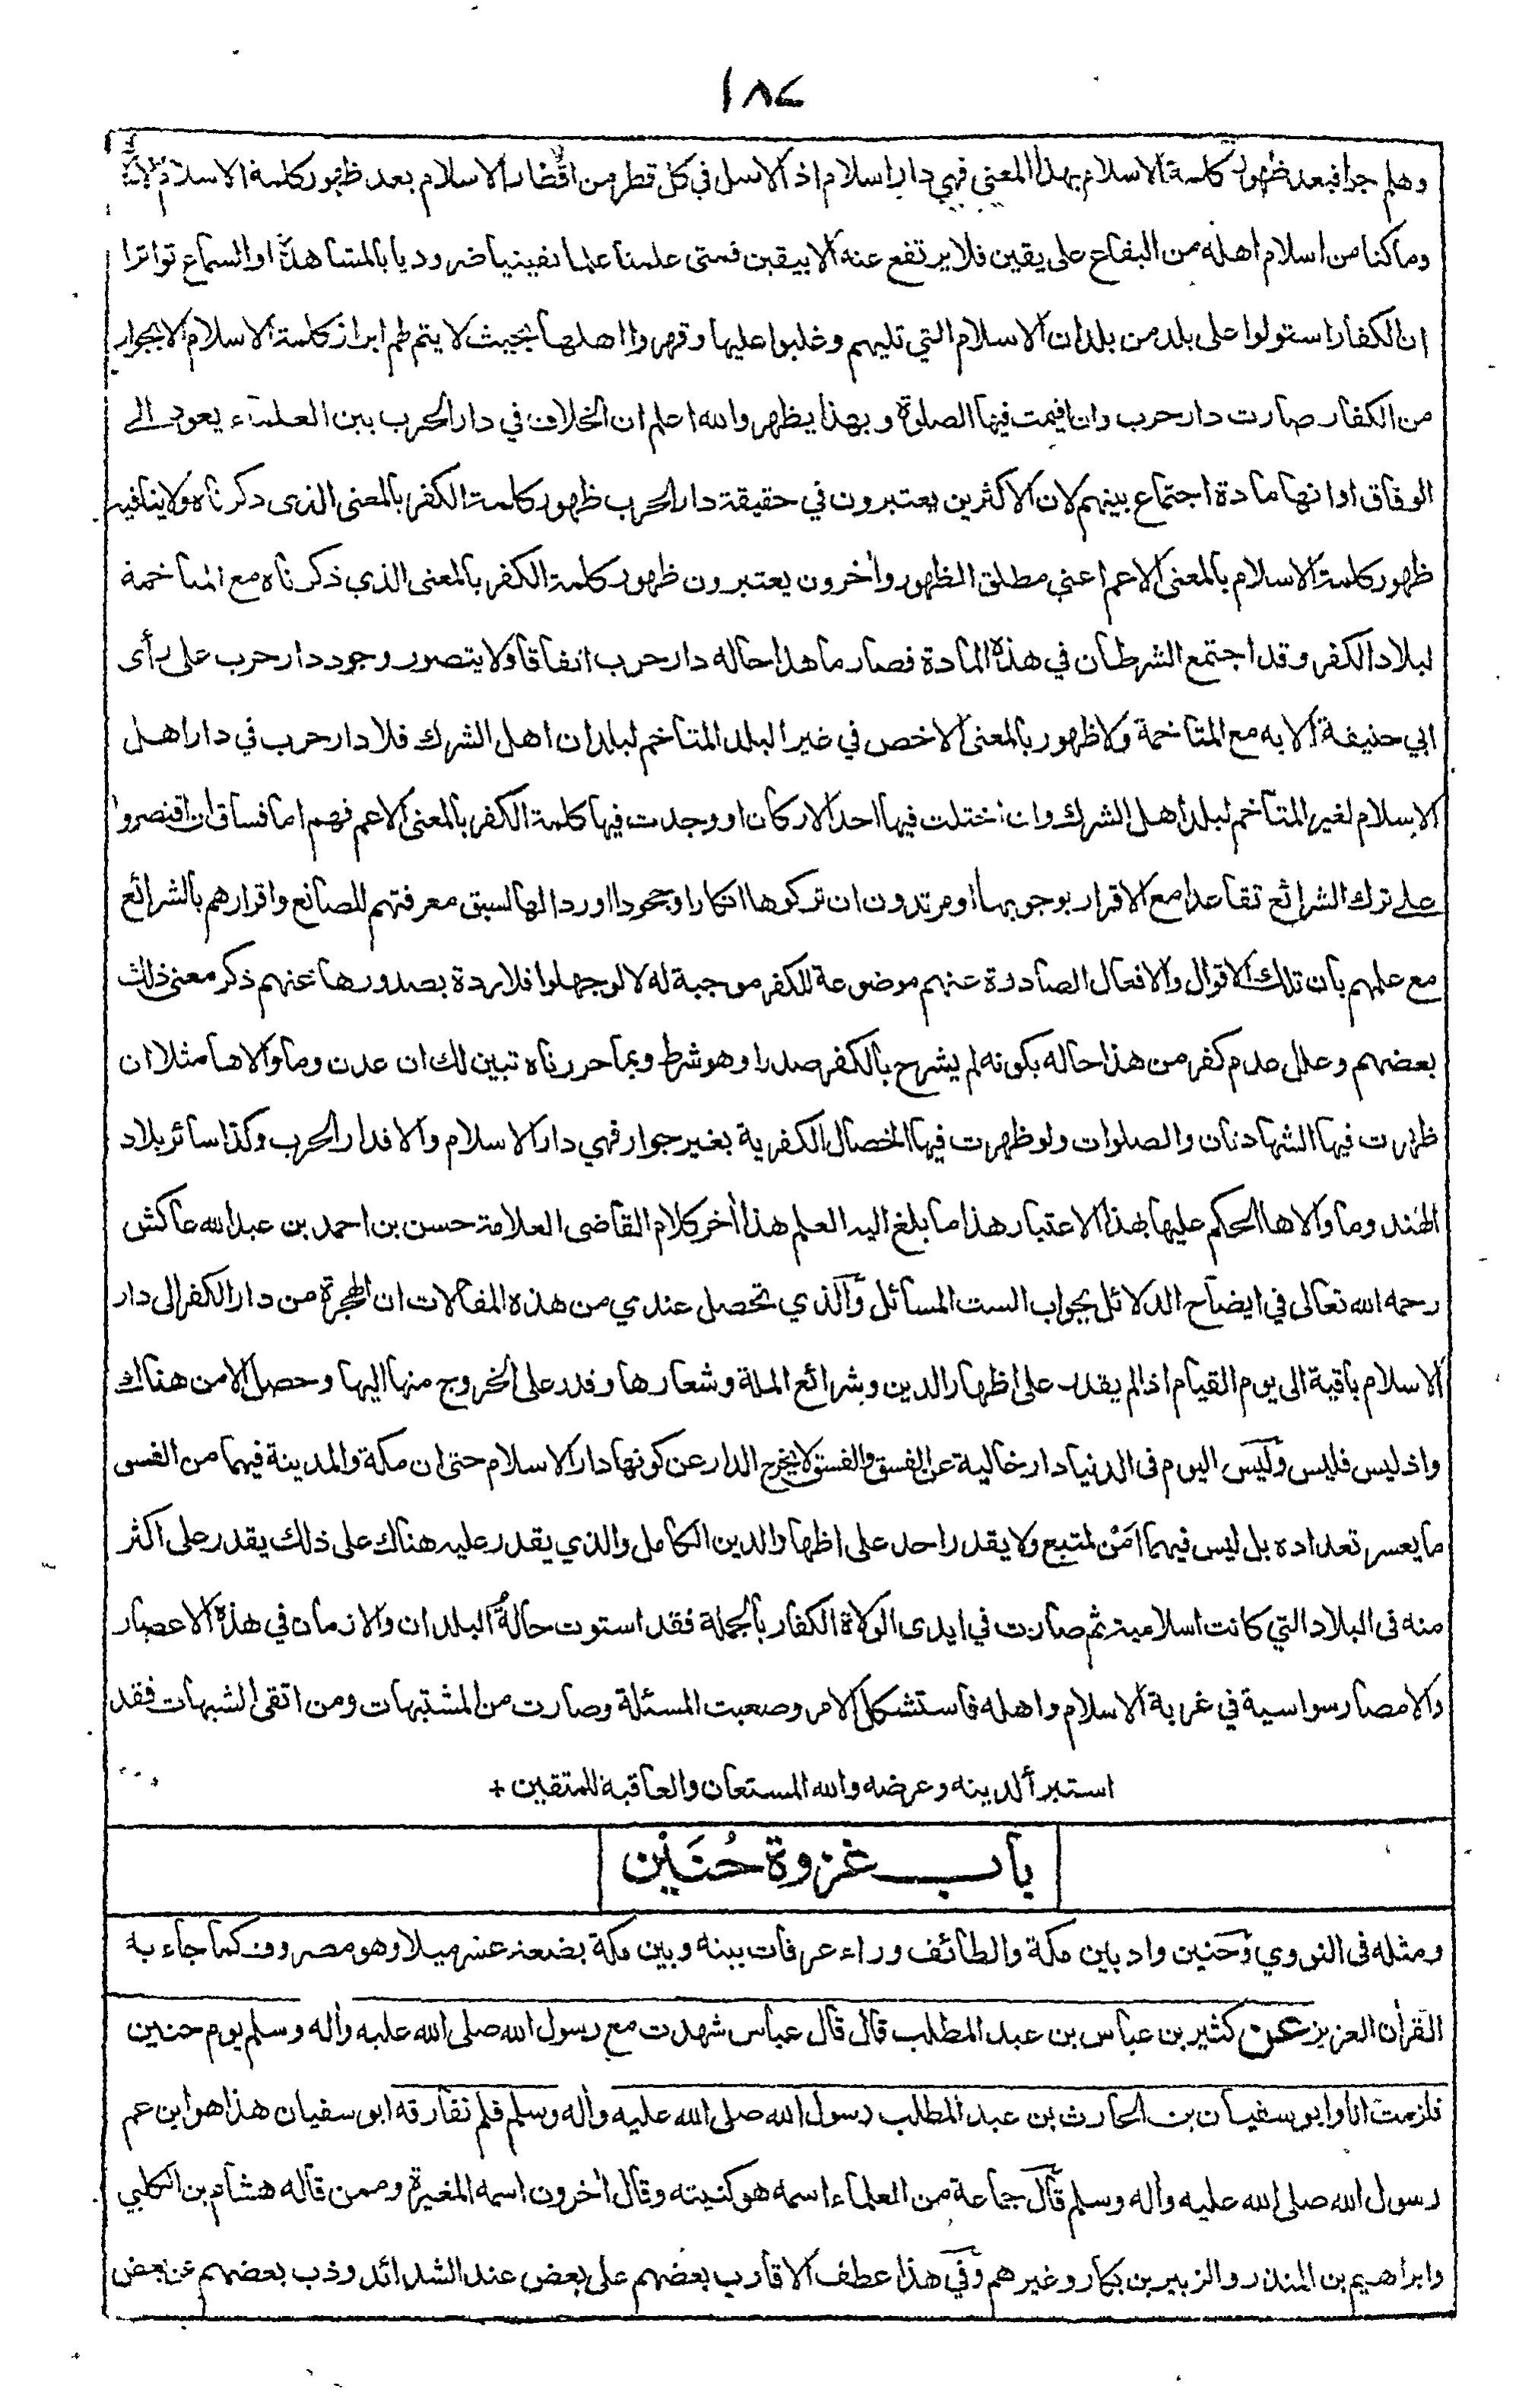 ١٨٤
وهلم جرا فبعد ظهور كلمة الاسلام بهذا المعنى فهي دار اسلام اذ الاصل في كل قطر من اقطار الاسلام بعد ظهور كلمة الاسلام
وما كنا من اسلام اهله من البقاع على يقين فلا يرتفع عنه الا بيقين فمتى علمنا علما يقينيا ضروديا بالمشاهدة او السماع تواترا
ان الكفار استولوا على بلد من بلدان الاسلام التي تليهم وغلبوا عليها وقهروا اهلها بحيث لا يتم لهم ابراز كلمة الاسلام الا بجوار
من الكفار صارت دار حرب وان اقيمت فيها الصلوة وبهذا يظهر والله اعلم ان الخلاف في دار الحرب بين العلماء يعود الى
الوفاق اذ انها مادة اجتماع بينهم لان الاكثرين يعتبرون في حقيقة دار الحرب ظهور كلمة الكفر بالمعنى الذى ذكرناه ولا ينافيه
ظهور كلمة الاسلام بالمعنى الاعم اعني مطلق الظهور واخرون يعتبرون ظهور كلمة الكفر بالمعنى الذي ذكرناه مع المتاخمة
لبلاد الكفر وقد اجتمع الشرطان في هذه المادة فصار ما هذا حاله دار حرب اتفاقا ولا يتصور وجود دار حرب على رأى
ابي حنيفة الا به مع المتاخمة ولا ظهور بالمعنى الاخص في غير البلد المتاخم لبلدان اهل الشرك فلا دار حرب في دار اهل
الاسلام لغير المتاخم لبلد اهل الشرك وان اختلت فيها احد الاركان او وجدت فيها كلمة الكفر بالمعنى الاعم فهم اما فساق ان اقتصروا
على ترك الشرائع تقاعدا مع الاقرار بوجوبها او مرتدون ان تركوها انكارا وجحودا او ردا لها لسبق معرفتهم للصانع واقرارهم بالشرائع
مع علمهم بان تلك الاقوال والافعال الصادرة عنهم موضوعة للكفر موجبة له لا لو جهلوا فلا ردة بصدورها عنهم ذكر معنى ذلك
بعضهم وعلل عدم كفر من هذا حاله بكونه لم يشرح بالكفر صدرا وهو شرط وبما حررناه تبين لك ان عدن وما والاها مثلا ان
ظهرت فيها الشهادتان والصلوات ولو ظهرت فيها الخصال الكفرية بغير جوار فهي دار الاسلام والا فدار الحرب وكذا سائر بلاد
الهند وما والاها الحكم عليها بهذا الاعتبار هذا ما بلغ اليه العلم هذا اخر كلام القاضى العلامة حسن بن احمد بن عبد الله عاكش
رحمه الله تعالى في ايضاح الدلائل بجواب الست المسائل والذي تحصل عندي من هذه المقالات ان الهجرة من دار الكفر الى دار
الاسلام باقية الى يوم القيام اذ الم يقدر على اظهار الدين وشرائع الملة وشعارها وقدر على الخروج منها اليها وحصل الامن هناك
واذ ليس فليس وليس اليوم فى الدنيا دار خالية عن الفسق والفسق لا يخرج الدار عن كونها دار الاسلام حتى ان مكة والمدينة فيهما من الفسق
ما يعسر تعداده بل ليس فيهما امن لمتبع ولا يقدر احد على اظهار الدين الكامل والذي يقدر عليه هناك على ذلك يقدر على اكثر
منه فى البلاد التي كانت اسلامية ثم صارت في ايدى الولاة الكفار بالجملة فقد استوت حالة البلدان والازمان في هذه الاعصار
والامصار سواسية في غربة الاسلام واهله فاستشكل الامر وصعبت المسئلة وصارت من المشتبهات ومن اتقى الشبهات فقد
استبرأ لدينه وعرضه والله المستعان والعاقبة للمتقين +
باب غزوة حُنَيْن
ومثله فى النووي وحنين واد بين مكة والطائف وراء عرفات بينه وبين مكة بضعة عشر ميلا وهو مصروف كما جاء به
القرأن العزيز عن كثير بن عباس بن عبد المطلب قال قال عباس شهدت مع رسول الله صلى الله عليه وأله وسلم يوم حنين
فلزمت انا وابو سفيان بن الحارث بن عبد المطلب رسول الله صلى الله عليه وأله وسلم فلم نفارقه ابو سفيان هذا هو ابن عم
رسول الله صلى الله عليه وأله وسلم قال جماعة من العلماء اسمه هو كنيته وقال أخرون اسمه المغيرة وممن قاله هشام بن الكلبي
وابراهيم بن المنذر والزبير بن بكار وغيرهم وفي هذا عطف الاقارب بعضهم على بعض عند الشدائد وذب بعضهم عن بعض